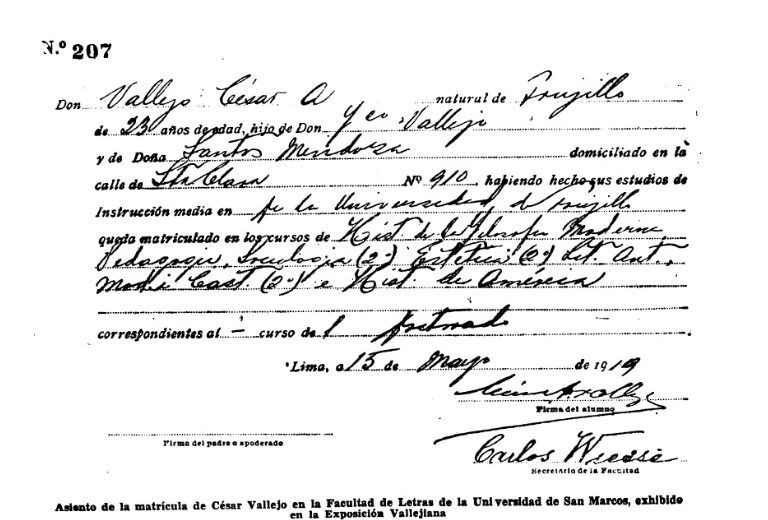 N.º 207
Don Vallejo César A natural de Trujillo
de 23 años de edad, hijo de Don Vallejo
y de Doña Santos Mendoza domiciliado en la
calle de Sta Clara Nº 910 habiendo hecho sus estudios de
Instrucción media en la Universidad de Trujillo
queda matriculado en los cursos de Hist. de la Filosofía Moderna
Pedagogía, Sociología (2º) Estética (2º) Lit. Ant.
Mod. Cast. (2º) é Hist. de América
correspondientes al - curso de
Lima, a 15 de Mayo de 1919
Firma del alumno
Firma del padre o apoderado
Carlos Wiesse
Secretario de la Facultad
Asiento de la matrícula de César Vallejo en la Facultad de Letras de la Universidad de San Marcos, exhibido
en la Exposición Vallejiana